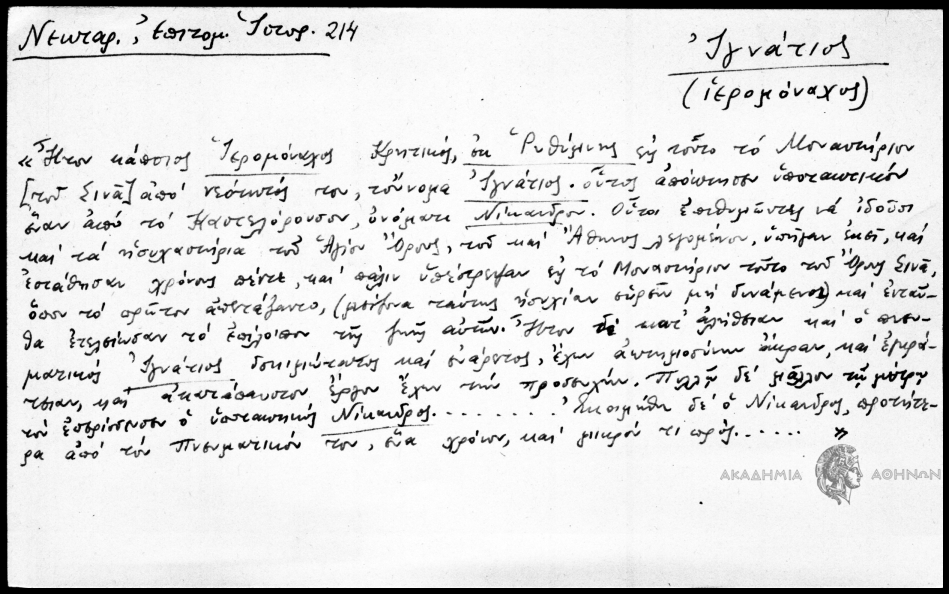 Νεκταρ., Ἐπιτομ. Ἱστορ. 214
Ἰγνάτιος
(ἱερομόναχος)
« Ἦτον κάποιος Ἱερομόναχος Κρητικός, ἐκ Ῥυθύμνης εἰς τοῦτο τό Μοναστήριον
[τοῦ Σινᾶ] ἀπό νεότητός του, τοὔνομα Ἰγνάτιος. οὗτος ἀπόκτησεν ὑποτακτικόν
ἕναν ἀπό τό Καστελόρουσον, ὀνόματι Νίκανδρον. Οὗτοι ἐπιθυμῶντες νά ἰδοῦσι
καί τά ἡσυχαστήρια τοῦ Ἁγίου Ὄρους, τοῦ καί Ἄθωνος λεγομένου, ὑπῆγαν ἐκεῖ, καί
ἐστάθησαν χρόνους πέντε, καί πάλιν ὑπέστρεψαν εἰς τό Μοναστήριον τοῦτο τοῦ Ὄρους Σινᾶ,
ὅπου τό πρῶτον ἀπετάξαντο, (μείζονα ταύτης ἡσυχίαν εὑρεῖν μή δυνάμενοι) καί ἐνταῦ-
θα ἐτελείωσαν τό ἐπίλοιπον τῆς ζωῆς αὐτῶν. Ἦτον δέ κατ' ἀλήθειαν καί ὁ πνευ-
ματικός Ἰγνάτιος δοκιμώτατος καί ἐνάρετος, ἔχων ἀκτημοσύνην ἄκραν, καί ἐγκρά-
τειαν, καί ἀκατάπαυστον ἔργον ἔχων τήν προσευχήν. Πολλῷ δέ μᾶλλον
τον ἐπερίσσευσεν ὁ ὑποτακτικός Νίκανδρος. . . . . . . . . Ἐκοιμήθη δέ ὁ Νίκανδρος, προτήτε-
ρα ἀπό τόν Πνευματικόν του, ἕνα χρόνον, καί μικρόν τι πρός. . . . . . »
ΑΚΑΔΗΜΙΑ ΑΘΗΝΩΝ